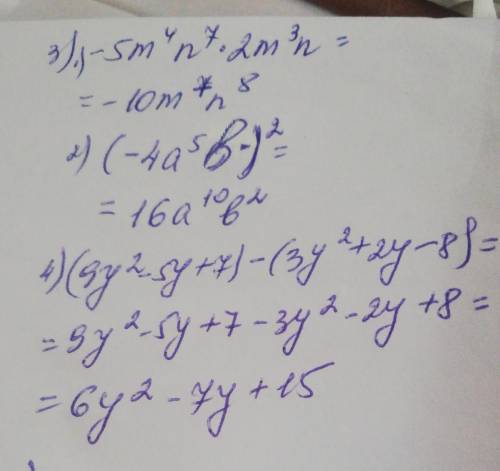 3) 1) -5m⁴n⁷·2m³n=
= -10m⁷n⁸
2) (-4a⁵b)²=
= 16a¹⁰b²
4) (9y²-5y+7)-(3y²+2y-8)=
= 9y²-5y+7-3y²-2y+8=
= 6y²-7y+15